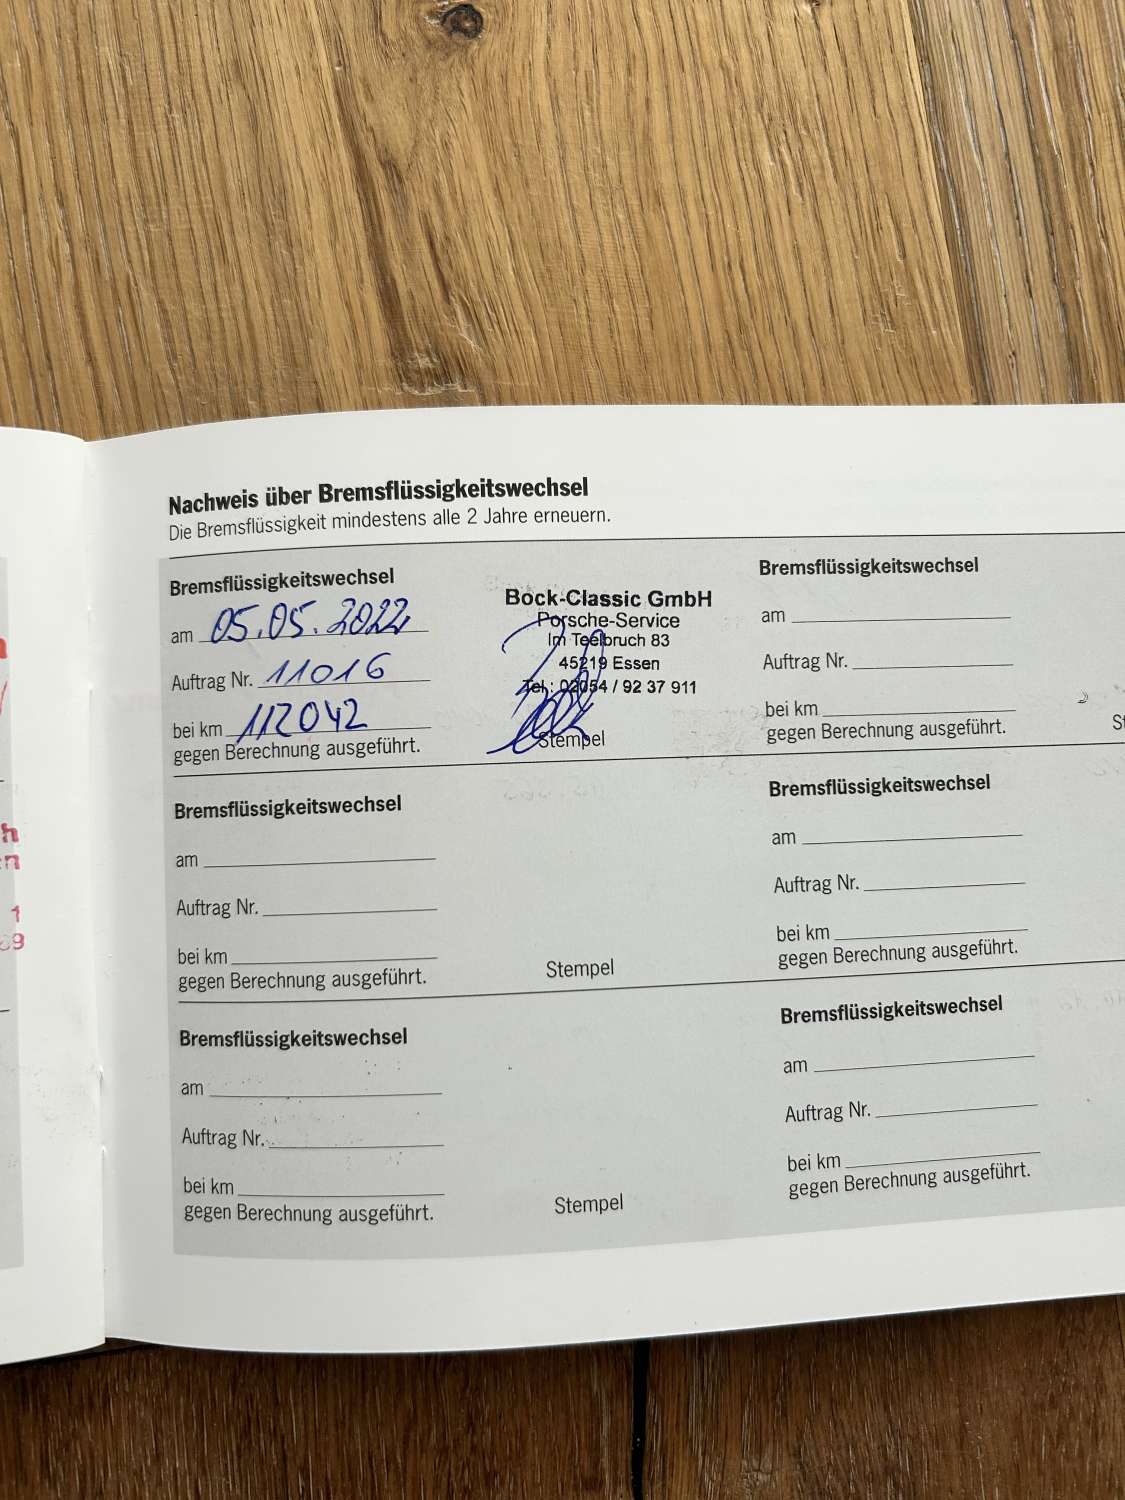 Nachweis über Bremsflüssigkeitswechsel
Die Bremsflüssigkeit mindestens alle 2 Jahre erneuern.
Bremsflüssigkeitswechsel
am 05.05.2022
Auftrag Nr. 11016
bei km 112042
gegen Berechnung ausgeführt.
Bock-Classic GmbH
Porsche-Service
Im Teelbruch 83
45219 Essen
Tel.: 02054 / 92 37 911
Stempel
Bremsflüssigkeitswechsel
am
Auftrag Nr.
bei km
gegen Berechnung ausgeführt.
St
Bremsflüssigkeitswechsel
am
Auftrag Nr.
bei km
gegen Berechnung ausgeführt.
Stempel
Bremsflüssigkeitswechsel
am
Auftrag Nr.
bei km
gegen Berechnung ausgeführt.
Bremsflüssigkeitswechsel
am
Auftrag Nr.
bei km
gegen Berechnung ausgeführt.
Stempel
Bremsflüssigkeitswechsel
am
Auftrag Nr.
bei km
gegen Berechnung ausgeführt.